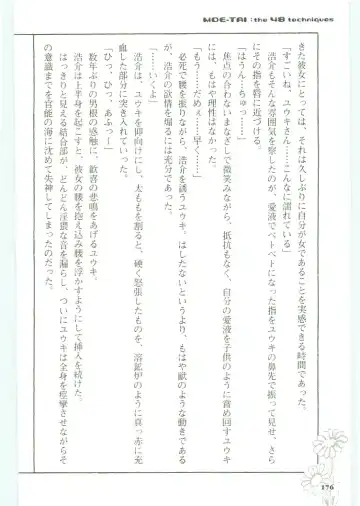 MOE-TAI : the 48 techniques
きた彼女にとっては、それは久しぶりに自分が女であることを実感できる時間であった。
「すごいね、ユウキさん……こんなに濡れている」
浩介もそんな雰囲気を察したのか、愛液でベトベトになった指をユウキの鼻先で振って見せ、さら
にその指を唇に近づける。
「はうん…らちゅっ……」
焦点の合わないまなざしで微笑みながら、抵抗もなく、自分の愛液を子供のように舐め回すユウキ
には、もはや理性はなかった。
「もう……だめぇ…早くぅ……」
必死で腰を振りながら、浩介を誘うユウキ。はしたないというより、もはや獣のような動きである
が、浩介の欲情を煽るには充分であった。
「……いくよ」
浩介は、ユウキを仰向けにし、太ももを割ると、硬く怒張したものを、溶鉱炉のように真っ赤に充
血した部分に突き入れていった。
「ひっ、あふっ〜」
数年ぶりの男根の感触に、歓喜の悲鳴をあげるユウキ。
浩介は上半身を起こすと、彼女の腰を抱え込み腰を浮かすようにして挿入を続けた。
はっきりと見える結合部が、どんどん淫猥な音を漏らし、ついにユウキは全身を痙攣させながらそ
の意識までを官能の海に沈めて失神してしまったのだった。
176